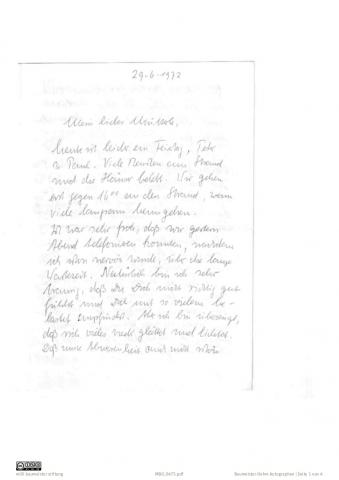 29-6-1972
Mein lieber
heute ist leider ein Feiertag, Peter
u. Paul. Viele Familien am Strand
und die Häuser belebt. Wir gehen
erst gegen 16⁰⁰ an den Strand, wenn
viele langsam heimgehen.
Ich war sehr froh, daß wir gestern
Abend telefonieren konnten, nachdem
ich schon nervös wurde, über die lange
Wartezeit. Natürlich bin ich sehr
traurig, daß Du Dich nicht richtig gut
fühlst und Dich mit so vielem be-
lastet empfindest. Aber ich bin überzeugt,
daß sich vieles noch glättet und lichtet.
Daß meine Abwesenheit auch nicht
willi baumeister stiftung
MBG_0473.pdf
Seite 1 von 4